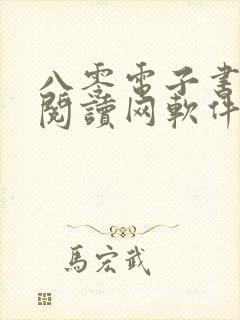 八零電子書
閱讀网軟件
馬宏武